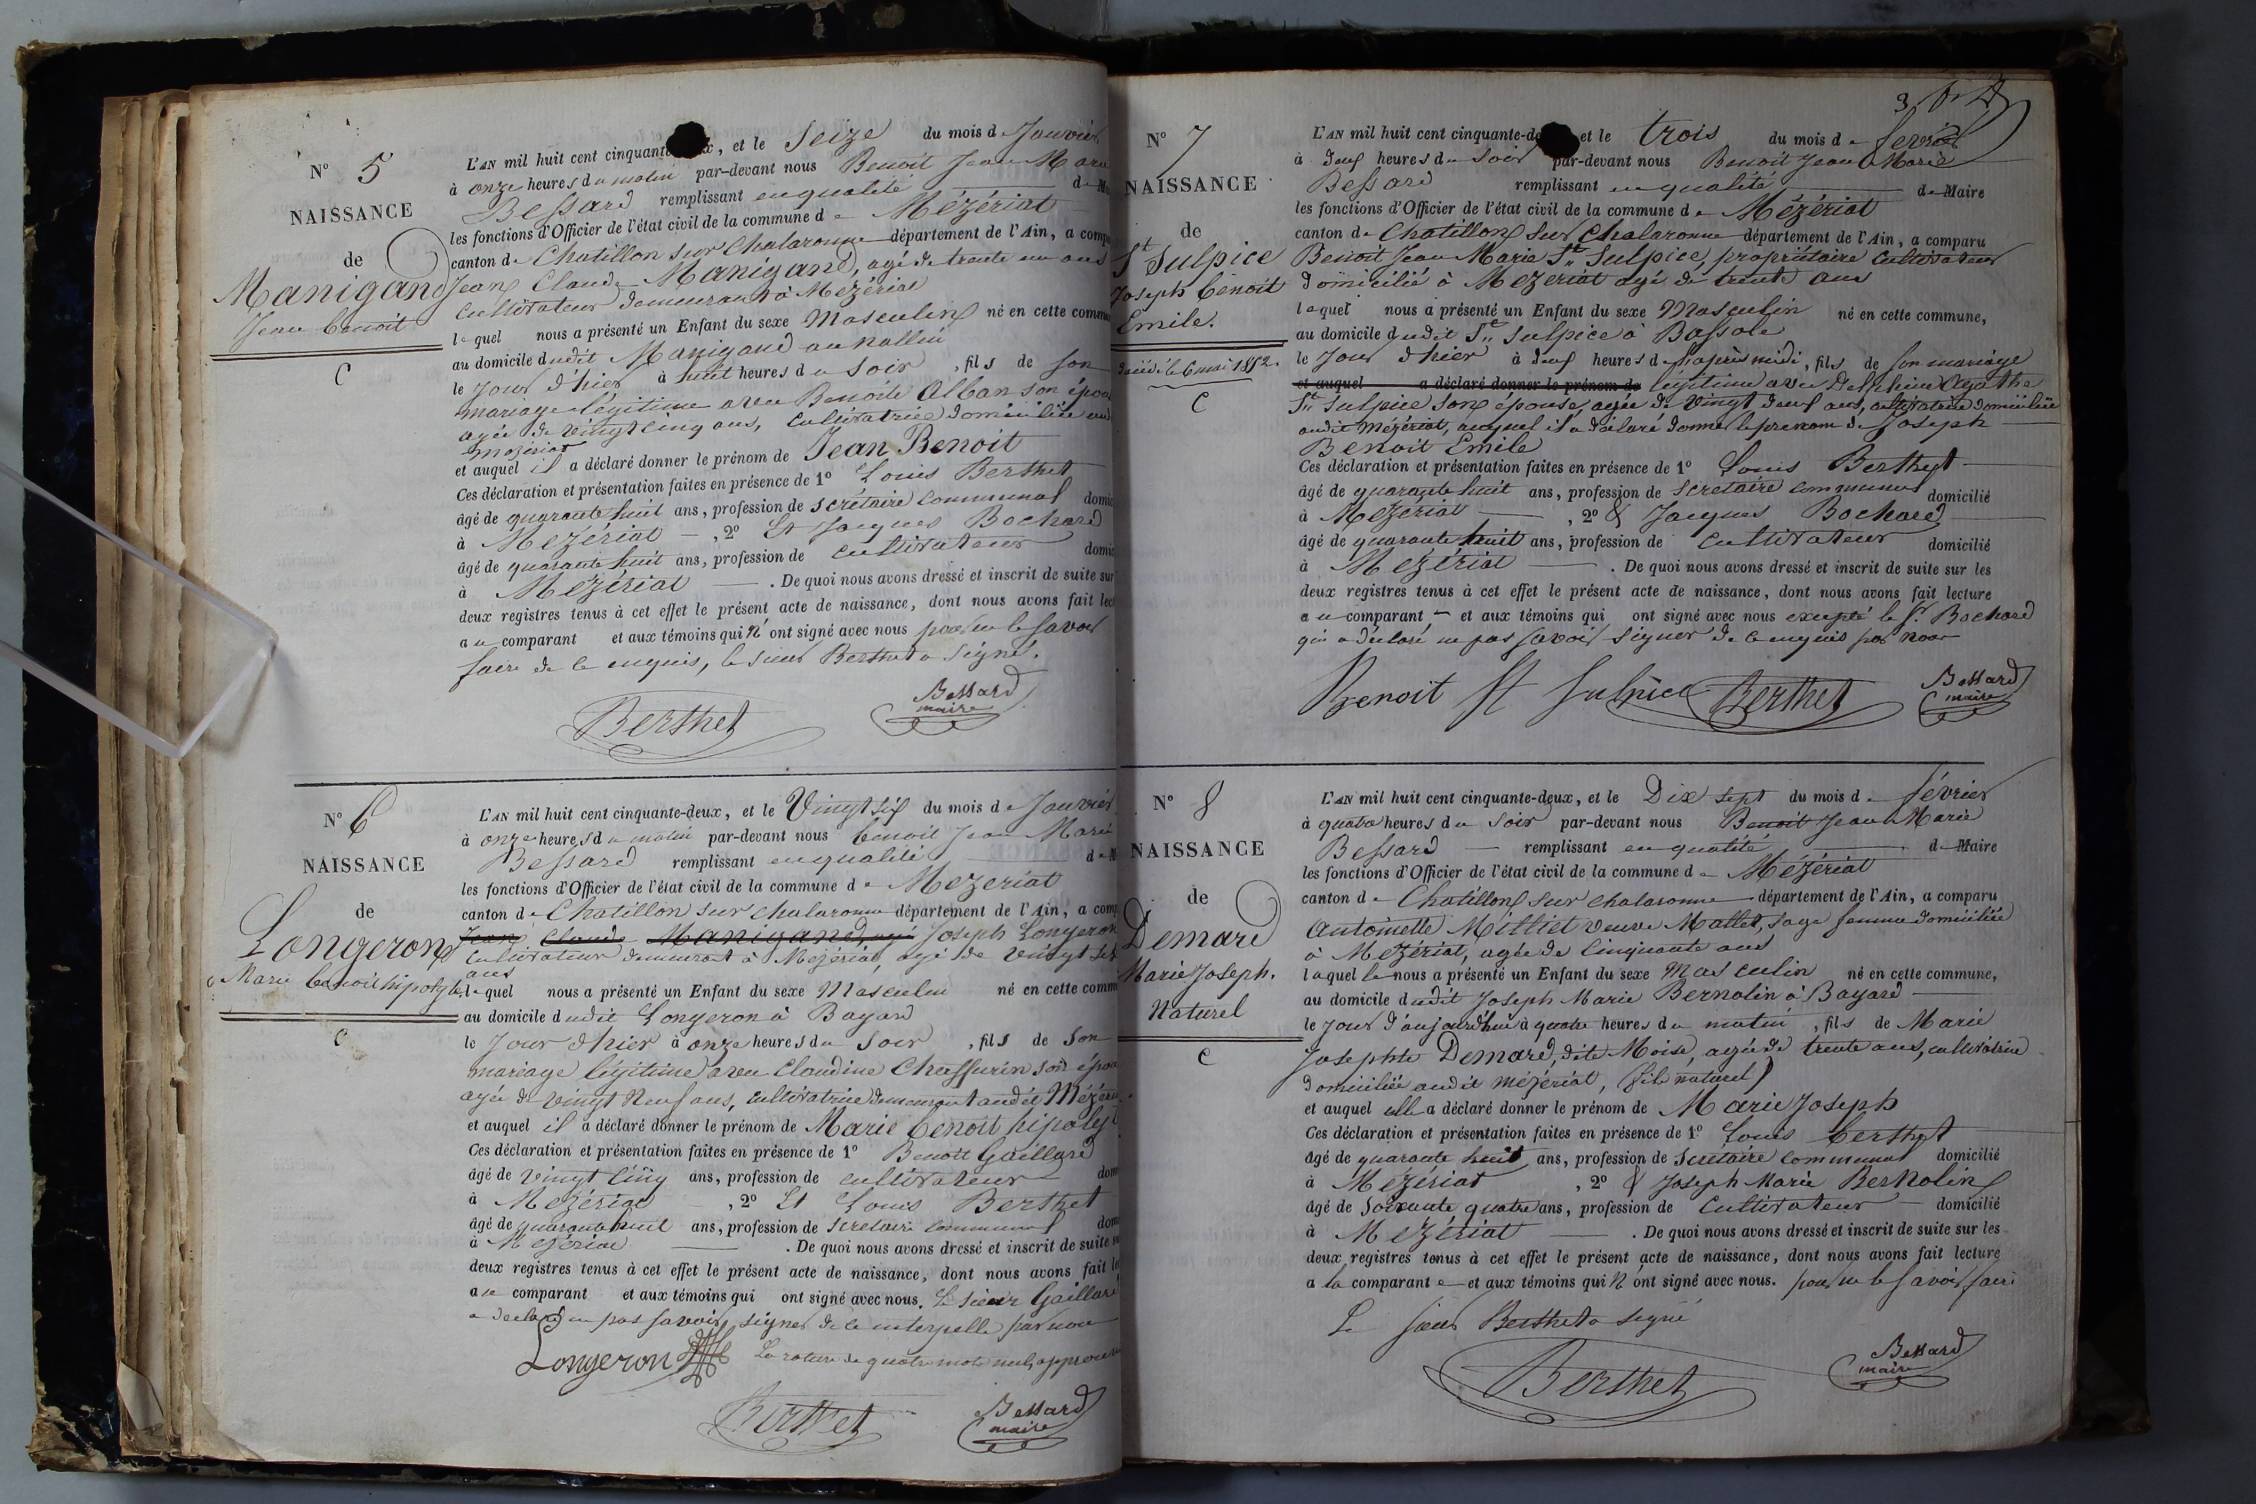 N° 5
NAISSANCE
de
Manigand
Jean Benoit
C
L'AN mil huit cent cinquante-deux, et le Seize du mois de Janvier
à onze heures du matin par-devant nous Benoit Jean Marie
Bessard remplissant en qualité de
les fonctions d'Officier de l'état civil de la commune de Mézériat
canton de Chatillon sur Chalaronne département de l'Ain, a comp
Jean Claude Manigand, agé de trente un ans
Cultivateur demeurant à Mézériat
lequel nous a présenté un Enfant du sexe Masculin né en cette commune
au domicile dudit Manigand au
le jour d'hier à huit heures du soir, fils de son
mariage légitime avec Benoite Alban son épouse
agée de vingt cinq ans, cultivatrice domiciliée audit
Mézériat
et auquel il a déclaré donner le prénom de Jean Benoit
Ces déclaration et présentation faites en présence de 1° Louis Berthet
âgé de quarante huit ans, profession de secrétaire communal domi
à Mézériat, 2° Et Jacques Bochard
âgé de quarante huit ans, profession de cultivateur domi
à Mézériat. De quoi nous avons dressé et inscrit de suite sur
deux registres tenus à cet effet le présent acte de naissance, dont nous avons fait lec
au comparant et aux témoins qui n'ont signé avec nous pour ne le savoir
faire de ce enquis, le sieur Berthet a signé.
Berthet
Bessard
maire
N° 6
NAISSANCE
de
Longeron
Marie benoit hipolyte
C
L'AN mil huit cent cinquante-deux, et le Vingt six du mois de Janvier
à onze heures du matin par-devant nous benoit Jean Marie
Bessard remplissant en qualité de
les fonctions d'Officier de l'état civil de la commune de Mezeriat
canton de Chatillon sur chalaronne département de l'Ain, a comp
Jean Claude Manigand, agé Joseph Longeron
cultivateur demeurant à Mezériat, agé de vingt sept
ans
lequel nous a présenté un Enfant du sexe Masculin né en cette comm
au domicile dudit Longeron à Bayard
le jour d'hier à onze heures du soir, fils de son
mariage légitime avec Claudine Chassurin son épouse
agée de vingt neuf ans, cultivatrice demeurant audit Mézériat
et auquel il a déclaré donner le prénom de Marie benoit hipolyt
Ces déclaration et présentation faites en présence de 1° Benoit Gaillard
âgé de vingt cinq ans, profession de cultivateur dom
à Mézériat, 2° Et Louis Berthet
âgé de quarante huit ans, profession de secretaire communal dom
à Mézériat. De quoi nous avons dressé et inscrit de suite
deux registres tenus à cet effet le présent acte de naissance, dont nous avons fait le
au comparant et aux témoins qui ont signé avec nous. Le sieur Gaillard
a declaré ne pas savoir signer de ce interpellé par nous
Longeron La rature de quatre mots nuls approuvée
Berthet
Bessard
maire
3
N° 7
NAISSANCE
de
St Sulpice
Joseph benoit
Emile.
décédé le 6 mai 1852.
C
L'AN mil huit cent cinquante-deux et le trois du mois de fevrier
à deux heures du soir par-devant nous Benoit Jean Marie
Bessard remplissant en qualité de Maire
les fonctions d'Officier de l'état civil de la commune de Mézériat
canton de Chatillon sur Chalaronne département de l'Ain, a comparu
Benoit Jean Marie St Sulpice, propriétaire cultivateur
domicilié à Mezeriat agé de trente ans
lequel nous a présenté un Enfant du sexe Masculin né en cette commune,
au domicile dudit St Sulpice à
le jour d'hier à deux heures de l'après midi, fils de son mariage
et auquel a déclaré donner le prénom de légitime avec Delphine Agathe
St Sulpice son épouse, agée de vingt deux ans, cultivatrice domiciliée
audit Mézériat, auquel il a déclaré donner le prenom de Joseph
Benoit Emile
Ces déclaration et présentation faites en présence de 1° Louis Berthet
âgé de quarante huit ans, profession de secretaire communal domicilié
à Mezériat, 2° & Jacques Bochard
âgé de quarante huit ans, profession de cultivateur domicilié
à Mézériat. De quoi nous avons dressé et inscrit de suite sur les
deux registres tenus à cet effet le présent acte de naissance, dont nous avons fait lecture
au comparant et aux témoins qui ont signé avec nous excepté le Sr Bochard
qui a déclaré ne pas savoir signer de ce enquis par nous
Benoit St Sulpice Berthet
Bessard
maire
N° 8
NAISSANCE
de
Demard
Marie Joseph.
Naturel
C
L'AN mil huit cent cinquante-deux, et le Dix sept du mois de février
à quatre heures du soir par-devant nous Benoit Jean Marie
Bessard remplissant en qualité de Maire
les fonctions d'Officier de l'état civil de la commune de Mézériat
canton de Chatillon sur chalaronne département de l'Ain, a comparu
Antoinette Milliet veuve Mallet, sage femme domiciliée
à Mézériat, agée de cinquante ans
laquelle nous a présenté un Enfant du sexe Masculin né en cette commune,
au domicile dudit Joseph Marie Bernolin à Bayard
le jour d'aujourd'hui à quatre heures du matin, fils de Marie
Josephte Demard, dite Moise, agée de trente ans, cultivatrice
domiciliée audit Mézériat, (fils naturel)
et auquel elle a déclaré donner le prénom de Marie Joseph
Ces déclaration et présentation faites en présence de 1° Louis berthet
âgé de quarante huit ans, profession de secrétaire communal domicilié
à Mézériat, 2° & Joseph Marie Bernolin
âgé de soixante quatre ans, profession de Cultivateur domicilié
à Mézériat. De quoi nous avons dressé et inscrit de suite sur les
deux registres tenus à cet effet le présent acte de naissance, dont nous avons fait lecture
a la comparante et aux témoins qui n'ont signé avec nous. pour ne le savoir faire
Le sieur Berthet a signé
Berthet
Bessard
maire